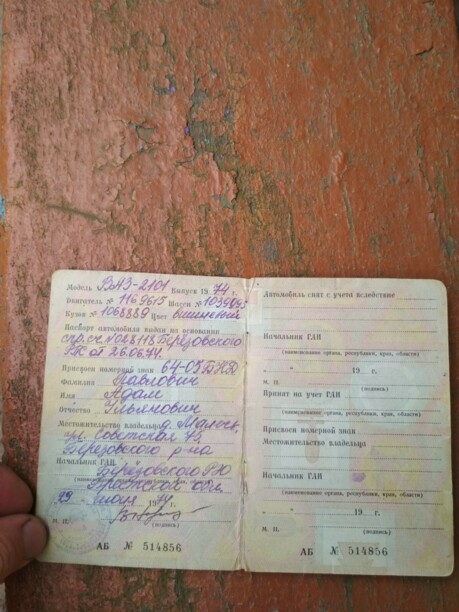 Модель ВАЗ-2101 Выпуск 1974 г.
Двигатель № 1169615 Шасси № 1039045
Кузов № 1068889 Цвет вишневый
Паспорт автомобиля выдан на основании
спр. сч. № 068118 Берёзовского
от 26.06.74.
Присвоен номерной знак 64-05 БНД
Фамилия Павлович
Имя Адам
Отчество Ульянович
Местожительство владельца
ул. Советская 75,
Берёзовского р-на
Начальник ГАИ Берёзовского
Брестской обл.
29 1974
(подпись)
М. П.
АБ № 514856
Автомобиль снят с учета вследствие
Начальник ГАИ
(наименование органа, республики, края, области)
" " 19 г.
М. П. (подпись)
Принят на учет ГАИ
(наименование органа, республики, края, области)
Присвоен номерной знак
Местожительство владельца
Начальник ГАИ
(наименование органа, республики, края, области)
" " 19 г.
М. П. (подпись)
АБ № 514856